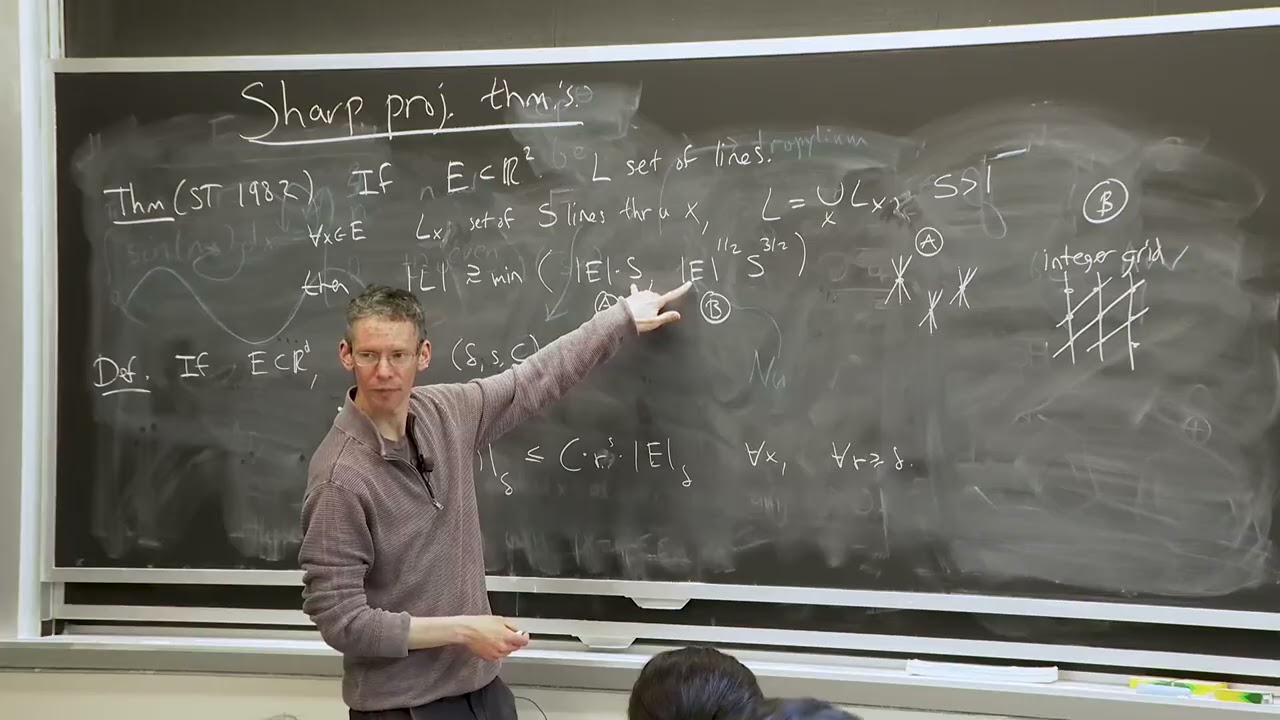 Sharp proj. thm's.
Thm (ST 1982) If E ⊂ ℝ² L set of lines.
∀x∈E Lₓ set of S lines thru x, L = ∪ₓ Lₓ, S>1
then |L| ≳ min ( |E|·S, |E|^{1/2} S^{3/2} )
A B
A
B
integer grid ✓
Def. If E⊂ℝᵈ, (δ, s, C)
|_δ ≤ C·rˢ·|E|_δ ∀x, ∀r≥δ.